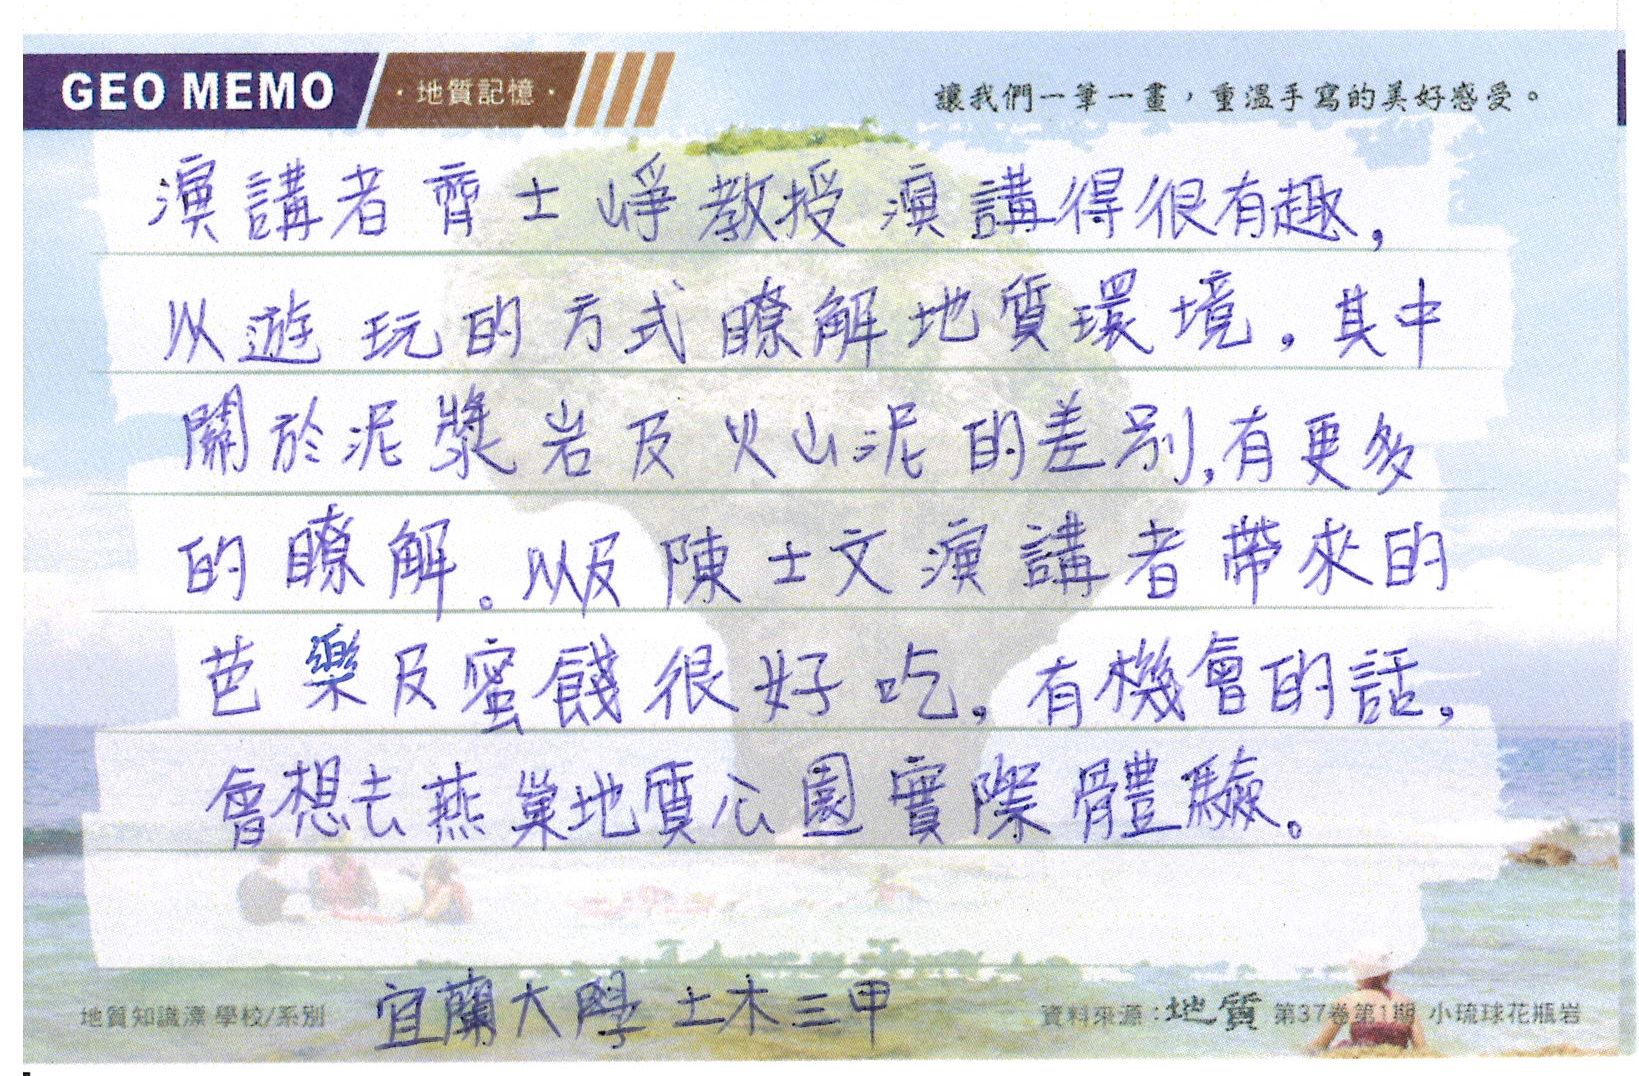 GEO MEMO ·地質記憶·
讓我們一筆一畫，重溫手寫的美好感受。
演講者齊士崢教授演講得很有趣，
以遊玩的方式瞭解地質環境，其中
關於泥漿岩及火山泥的差別，有更多
的瞭解。以及陳士文演講者帶來的
芭樂及蜜餞很好吃，有機會的話，
會想去燕巢地質公園實際體驗。
地質知識潗 學校/系別 宜蘭大學 土木三甲
資料來源：地質 第37卷第1期 小琉球花瓶岩